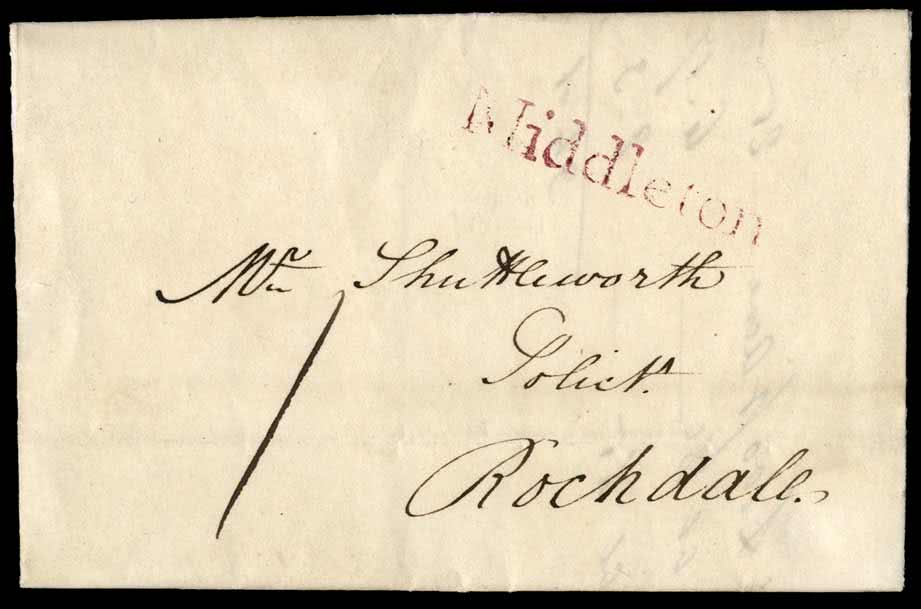 Middleton
Mr Shuttleworth
Solicr.
Rochdale.
1